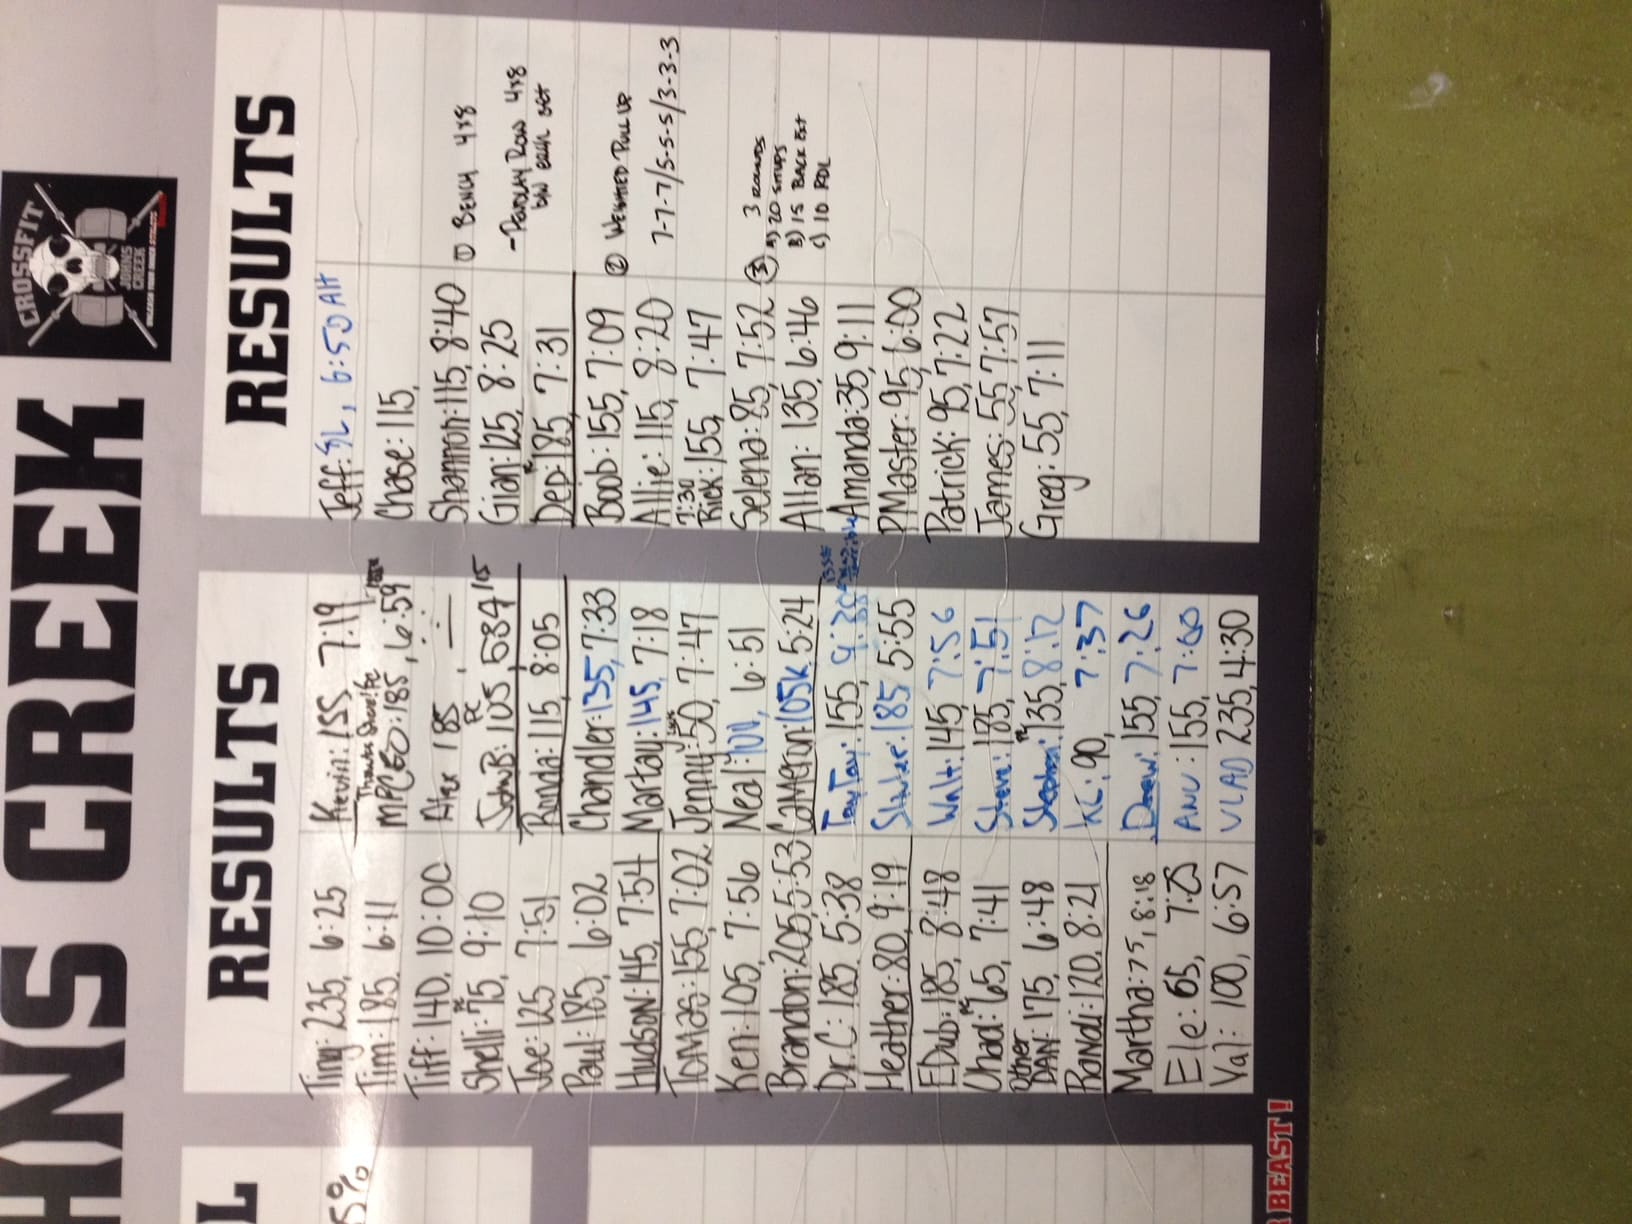 HNS CREEK
CROSSFIT
JOHNS
CREEK
L
5%
RESULTS
Tim: 185, 6:11
Tiff: 140, 10:00
Shelli: 75, 9:10
Joe: 125 7:51
Paul: 185, 6:02
HUDSON: 145, 7:54
TOMAS: 155, 7:02
Ken: 105, 7:56
Brandon: 205, 5:53
Dr.C: 185, 5:38
Heather: 80, 9:19
EDub: 185, 8:48
Chad: 65, 7:41
Other
DAN: 175, 6:48
Randi: 120, 8:21
Martha: 75, 8:18
Ele: 65,
Val: 100, 6:57
Kevin: 155 7:19
185, 6:59
Alex 185
JohnB: 105
115, 8:05
Chandler: 135, 7:33
Martay: 145, 7:18
Jenny: 50, 7:47
Neal: 100, 6:51
Cameron: 105k, 5:24
TayTay: 155, 9:38
185 5:55
Walt: 145, 7:56
Steve: 185, 7:51
Stephen: 135, 8:12
KL: 90, 7:37
Drew: 155, 7:26
ANU: 155, 7:00
VLAD 235, 4:30
RESULTS
Jeff: 6:50 Alt
Chase: 115,
Shannon: 115, 8:40
Gian: 125, 8:25
Dep: 185, 7:31
Boob: 155, 7:09
Allie: 115, 8:20
7:30
Rick: 155, 7:47
Selena: 85, 7:52
Allan: 135, 6:46
Amanda: 35, 9:11
PMaster: 95, 6:00
Patrick: 95, 7:22
James: 55, 7:57
Greg: 55, 7:11
① BENCH 4x8
- PENDLAY ROW 4x8
b/w each set
② WEIGHTED PULL UP
7-7-7/5-5-5/3-3-3
③ 3 ROUNDS
A) 20 SITUPS
B) 15 BACK EXT
C) 10 RDL
BEAST!